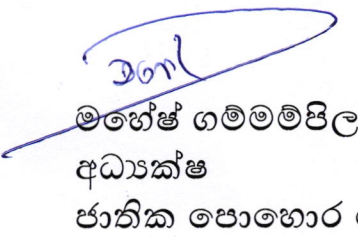 මහේෂ් ගම්මම්පිල
අධ්‍යක්ෂ
ජාතික පොහොර